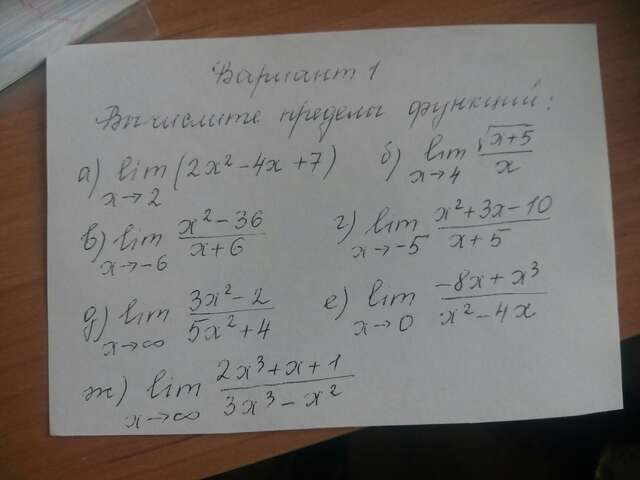 Вариант 1
Вычислите пределы функций:
а) lim x→2 (2x² - 4x + 7) б) lim x→4 √(x+5)/x
в) lim x→-6 (x² - 36)/(x + 6) г) lim x→-5 (x² + 3x - 10)/(x + 5)
д) lim x→∞ (3x² - 2)/(5x² + 4) е) lim x→0 (-8x + x³)/(x² - 4x)
ж) lim x→∞ (2x³ + x + 1)/(3x³ - x²)